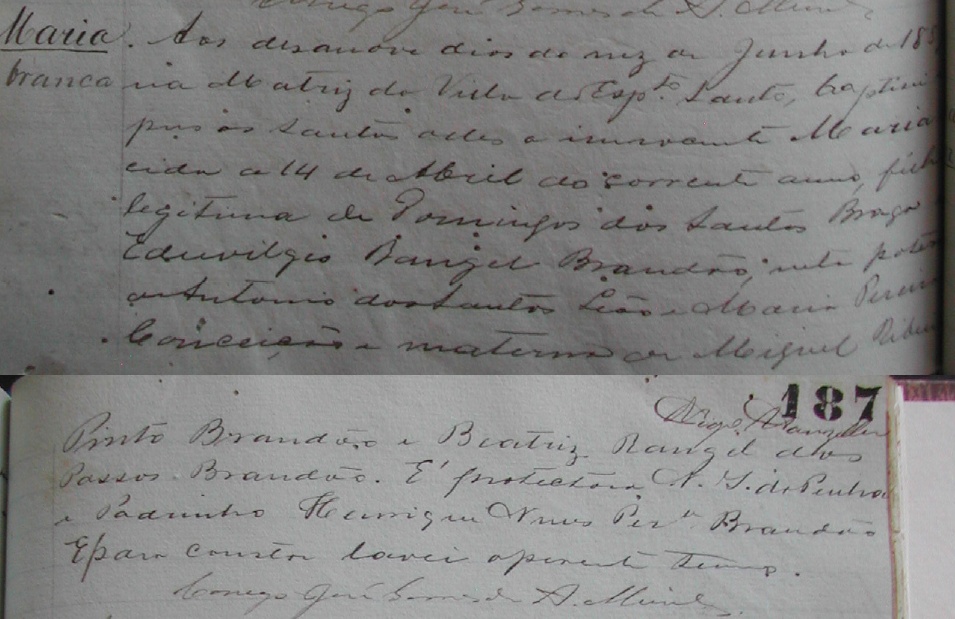 Conego José Gomes de A.
Maria. Aos desanove dias do mez de Junho de 18
branca na Matriz da Villa do Esp.to Santo, baptisei
pus os santos oleos a innocente Maria
cida a 14 de Abril do corrente anno, filha
legitima de Domingos dos Santos Braga
Eduvilgis Rangel Brandão, neta pater
de Antonio dos Santos Leão e Maria Pereira
Conceição e materna de Miguel
187
Pinto Brandão e Beatriz Rangel dos
Passos Brandão. É protectora N. S. da Penha
e Padrinho Henrique Nunes Per.a Brandão
E para constar lavrei o presente termo.
Conego José Gomes de A.